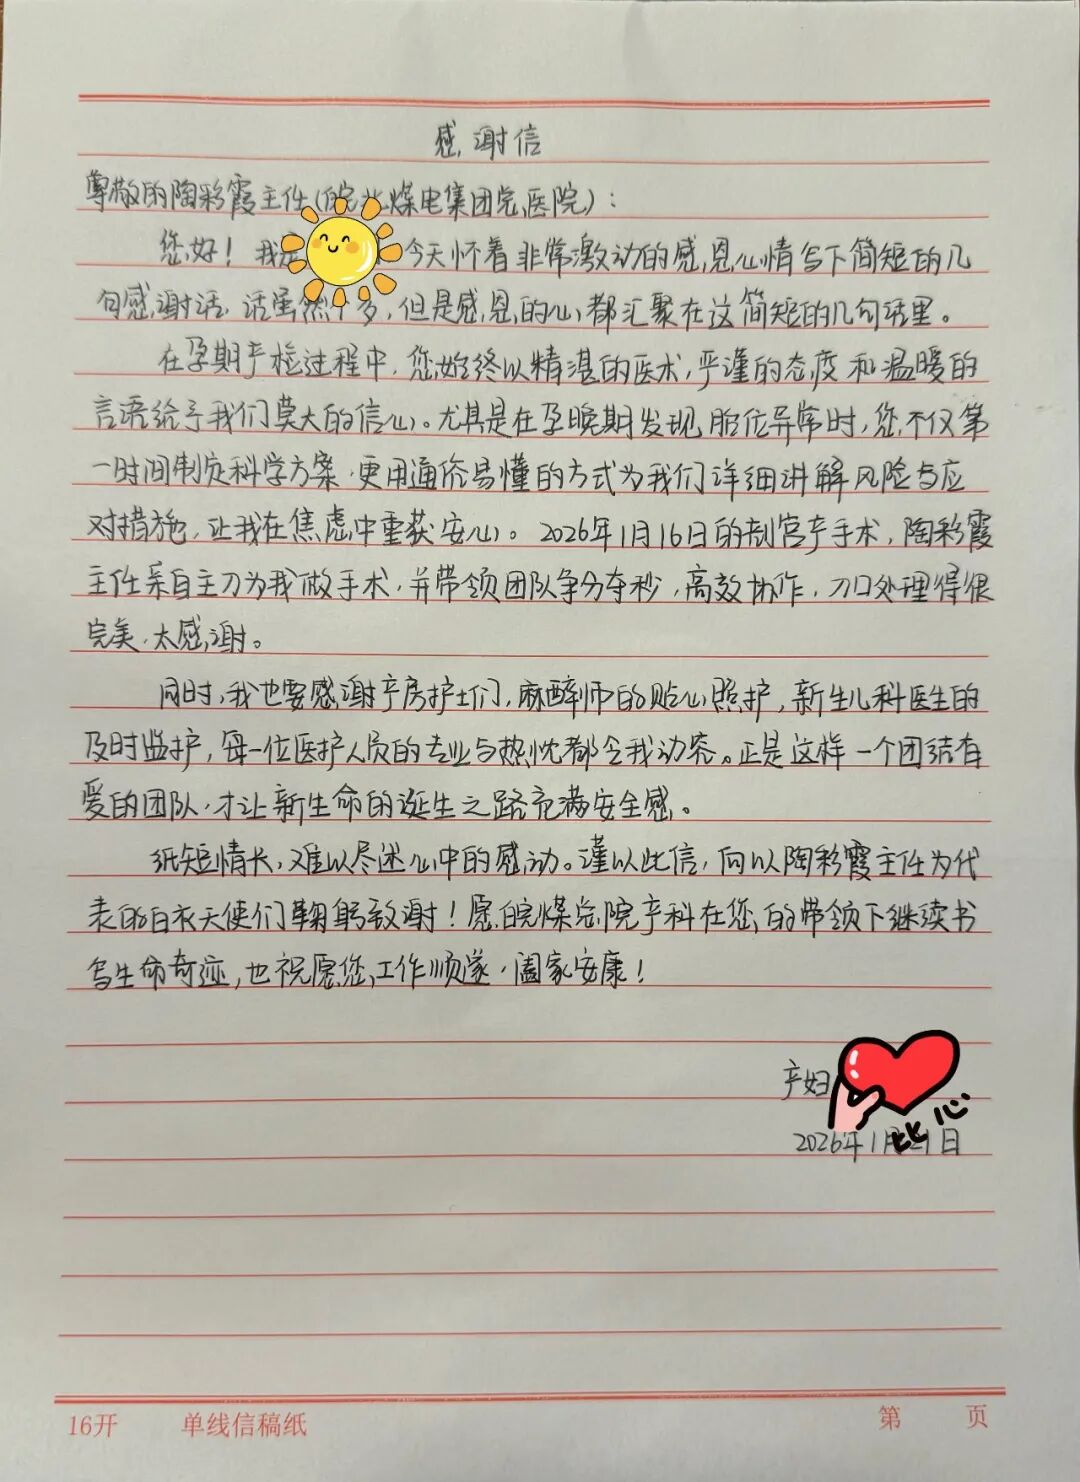 感谢信
尊敬的陶彩霞主任(皖北煤电集团总医院)：
您好！我是 今天怀着非常激动的感恩心情写下简短的几
句感谢话,话虽然不多,但是感恩的心都汇聚在这简短的几句话里。
在孕期产检过程中,您始终以精湛的医术,严谨的态度和温暖的
言语给予我们莫大的信心。尤其是在孕晚期发现胎位异常时,您不仅第
一时间制定科学方案,更用通俗易懂的方式为我们详细讲解风险与应
对措施,让我在焦虑中重获安心。2026年1月16日的剖宫产手术,陶彩霞
主任亲自主刀为我做手术,并带领团队争分夺秒,高效协作,刀口处理得很
完美,太感谢。
同时,我也要感谢产房护士们,麻醉师的贴心照护,新生儿科医生的
及时监护,每一位医护人员的专业与热忱都令我动容。正是这样一个团结有
爱的团队,才让新生命的诞生之路充满安全感。
纸短情长,难以尽述心中的感动。谨以此信,向以陶彩霞主任为代
表的白衣天使们鞠躬致谢！愿皖煤总院产科在您的带领下继续书
写生命奇迹,也祝愿您工作顺遂,阖家安康！
产妇
比心
2026年1月21日
16开 单线信稿纸 第 页